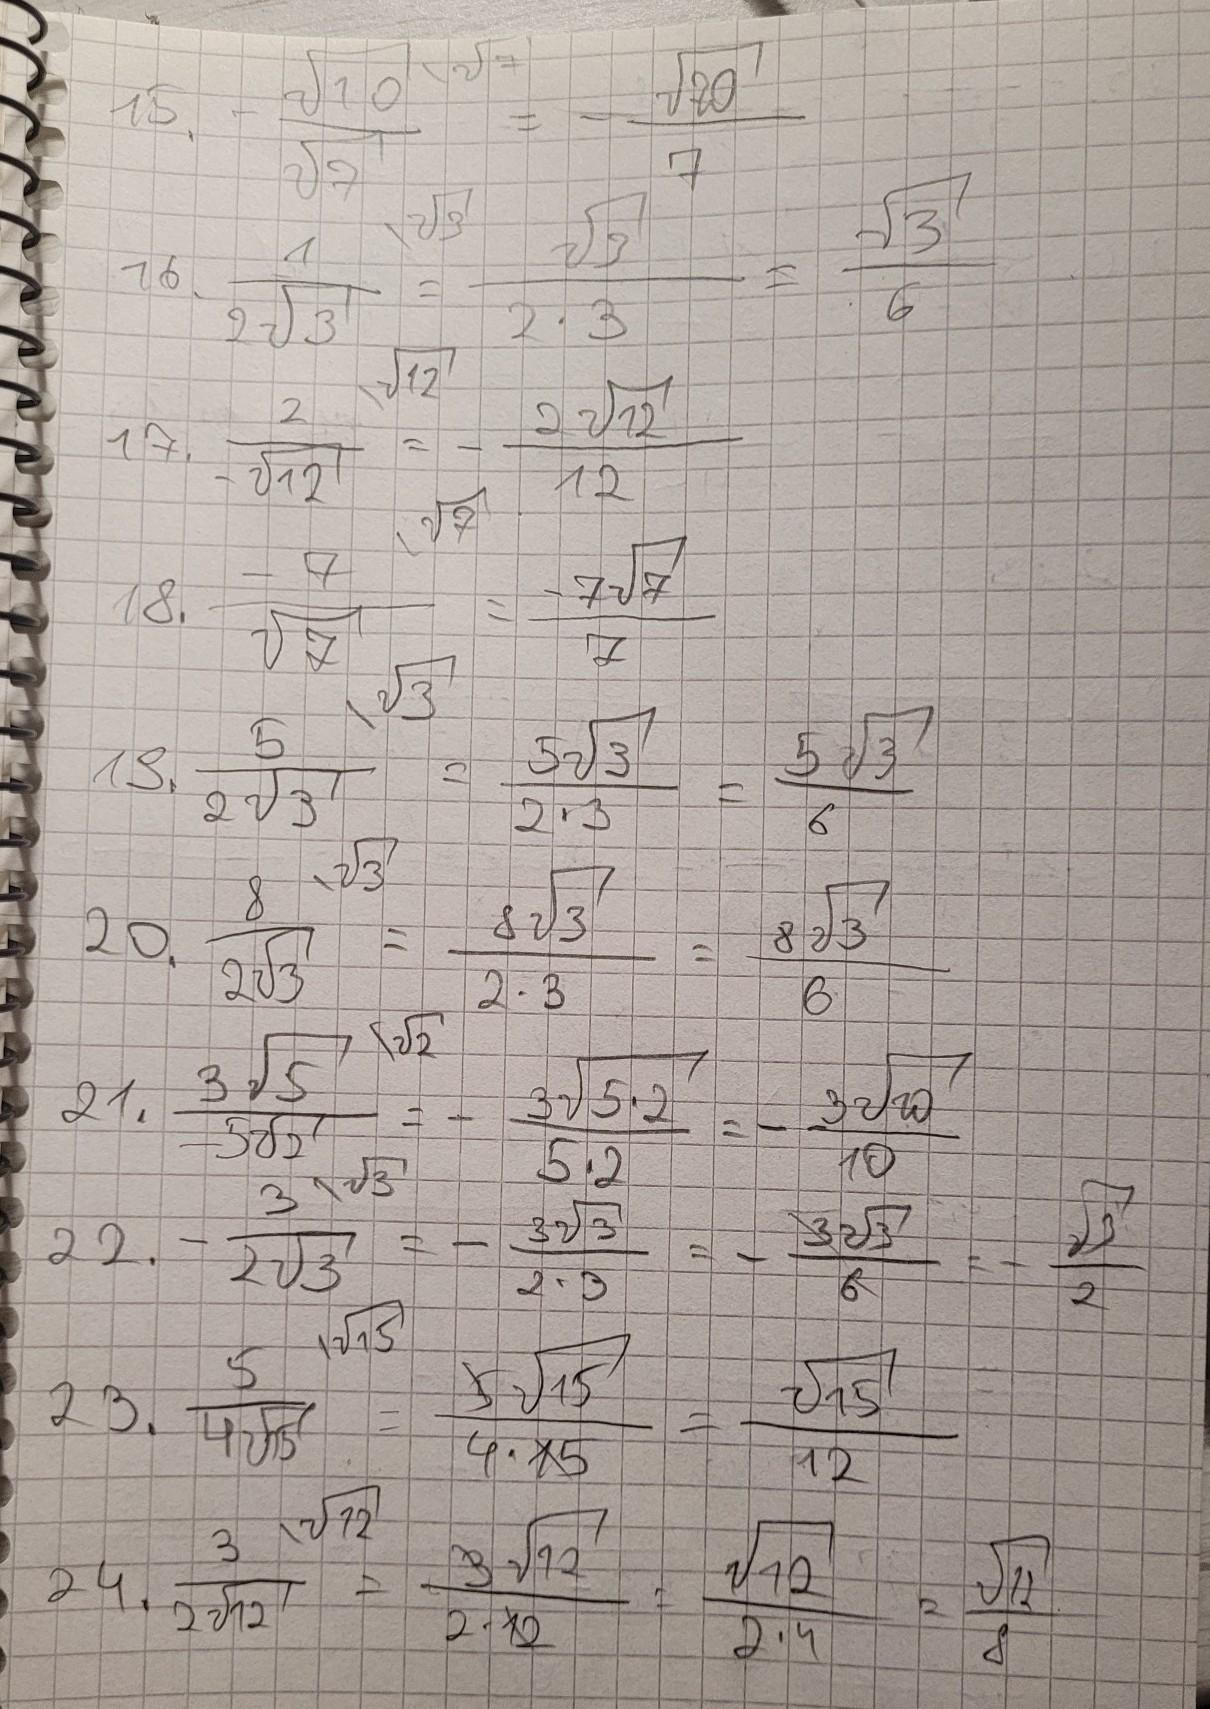 15. - √10/√7 \√7 = - √70/7
16. 1/2√3 \√3 = √3/2·3 = √3/6
17. 2/-√12 \√12 = - 2√12/12
18. -7/√7 \√7 = -7√7/7
19. 5/2√3 \√3 = 5√3/2·3 = 5√3/6
20. 8/2√3 \√3 = 8√3/2·3 = 8√3/6
21. 3√5/-5√2 \√2 = - 3√5·2/5·2 = - 3√10/10
22. - 3/2√3 \√3 = - 3√3/2·3 = - 3√3/6 = - √3/2
23. 5/4√15 \√15 = 5√15/4·15 = √15/12
24. 3/2√12 \√12 = 3√12/2·12 = √12/2·4 = √12/8